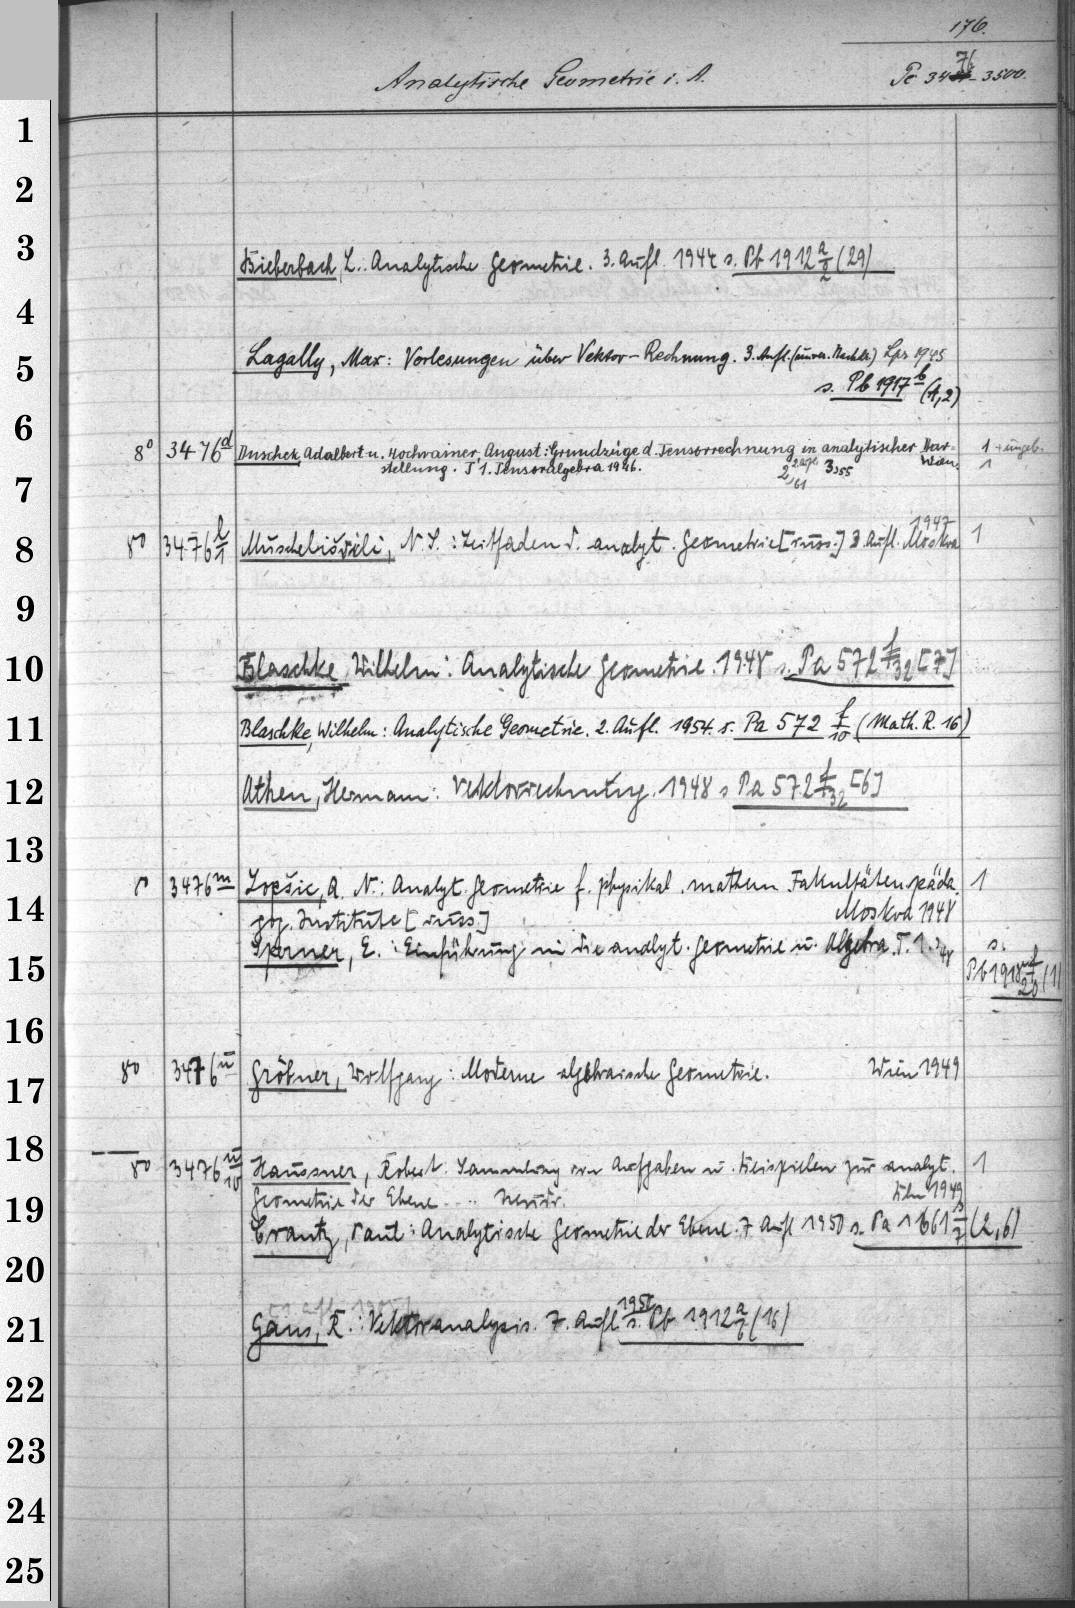 176.
Analytische Geometrie i. A.
76
Pc 34 - 3500.
1
2
3
Bieberbach, L.: Analytische Geometrie. 3. Aufl. 1944 s. Pb 1912 a/2 (29)
4
Lagally, Max: Vorlesungen über Vektor-Rechnung. 3. Aufl. Lpz 1945
5
s. Pb 1917 b (1,2)
6
8° 3476 d Duschek, Adalbert u. Hochrainer, August: Grundzüge d. Tensorrechnung in analytischer Dar- 1 + ungeb.
stellung. T 1. Tensoralgebra 1946. 2 2. Aufl. 61 3, 55 Wien. 1
7
1947
8
8° 3476 l/1 Muschelišvili, N. I.: Leitfaden d. analyt. Geometrie [russ.] 3. Aufl. Moskva 1
9
10
Blaschke, Wilhelm: Analytische Geometrie. 1948 s. Pa 572 f/32 [7]
11
Blaschke, Wilhelm: Analytische Geometrie. 2. Aufl. 1954. s. Pa 572 f/10 (Math. R. 16)
12
Athen, Hermann: Vektorrechnung. 1948 s Pa 572 f/32 [6]
13
3476 m Lopšic, A. N.: Analyt. Geometrie f. physikal. mathem. Fakultäten päda- 1
14
gog. Institute [russ.] Moskva 1948
Sperner, E.: Einführung in die analyt. Geometrie u. Algebra. T. 1. 48 s.
15
Pb 1918 f/20 (1)
16
8° 3476 n Gröbner, Wolfgang: Moderne algebraische Geometrie. Wien 1949
17
18
8° 3476 n/10 Haussner, Robert. Sammlung von Aufgaben u. Beispielen zur analyt. 1
Geometrie der Ebene ... Neudr. Bln 1949
19
Crantz, Paul: Analytische Geometrie der Ebene. 7. Aufl 1950 s. Pa 1661 s/7 (2,6)
20
1950
21
Gans, R.: Vektoranalysis. 7. Aufl s. Pb 1912 a/6 (16)
22
23
24
25